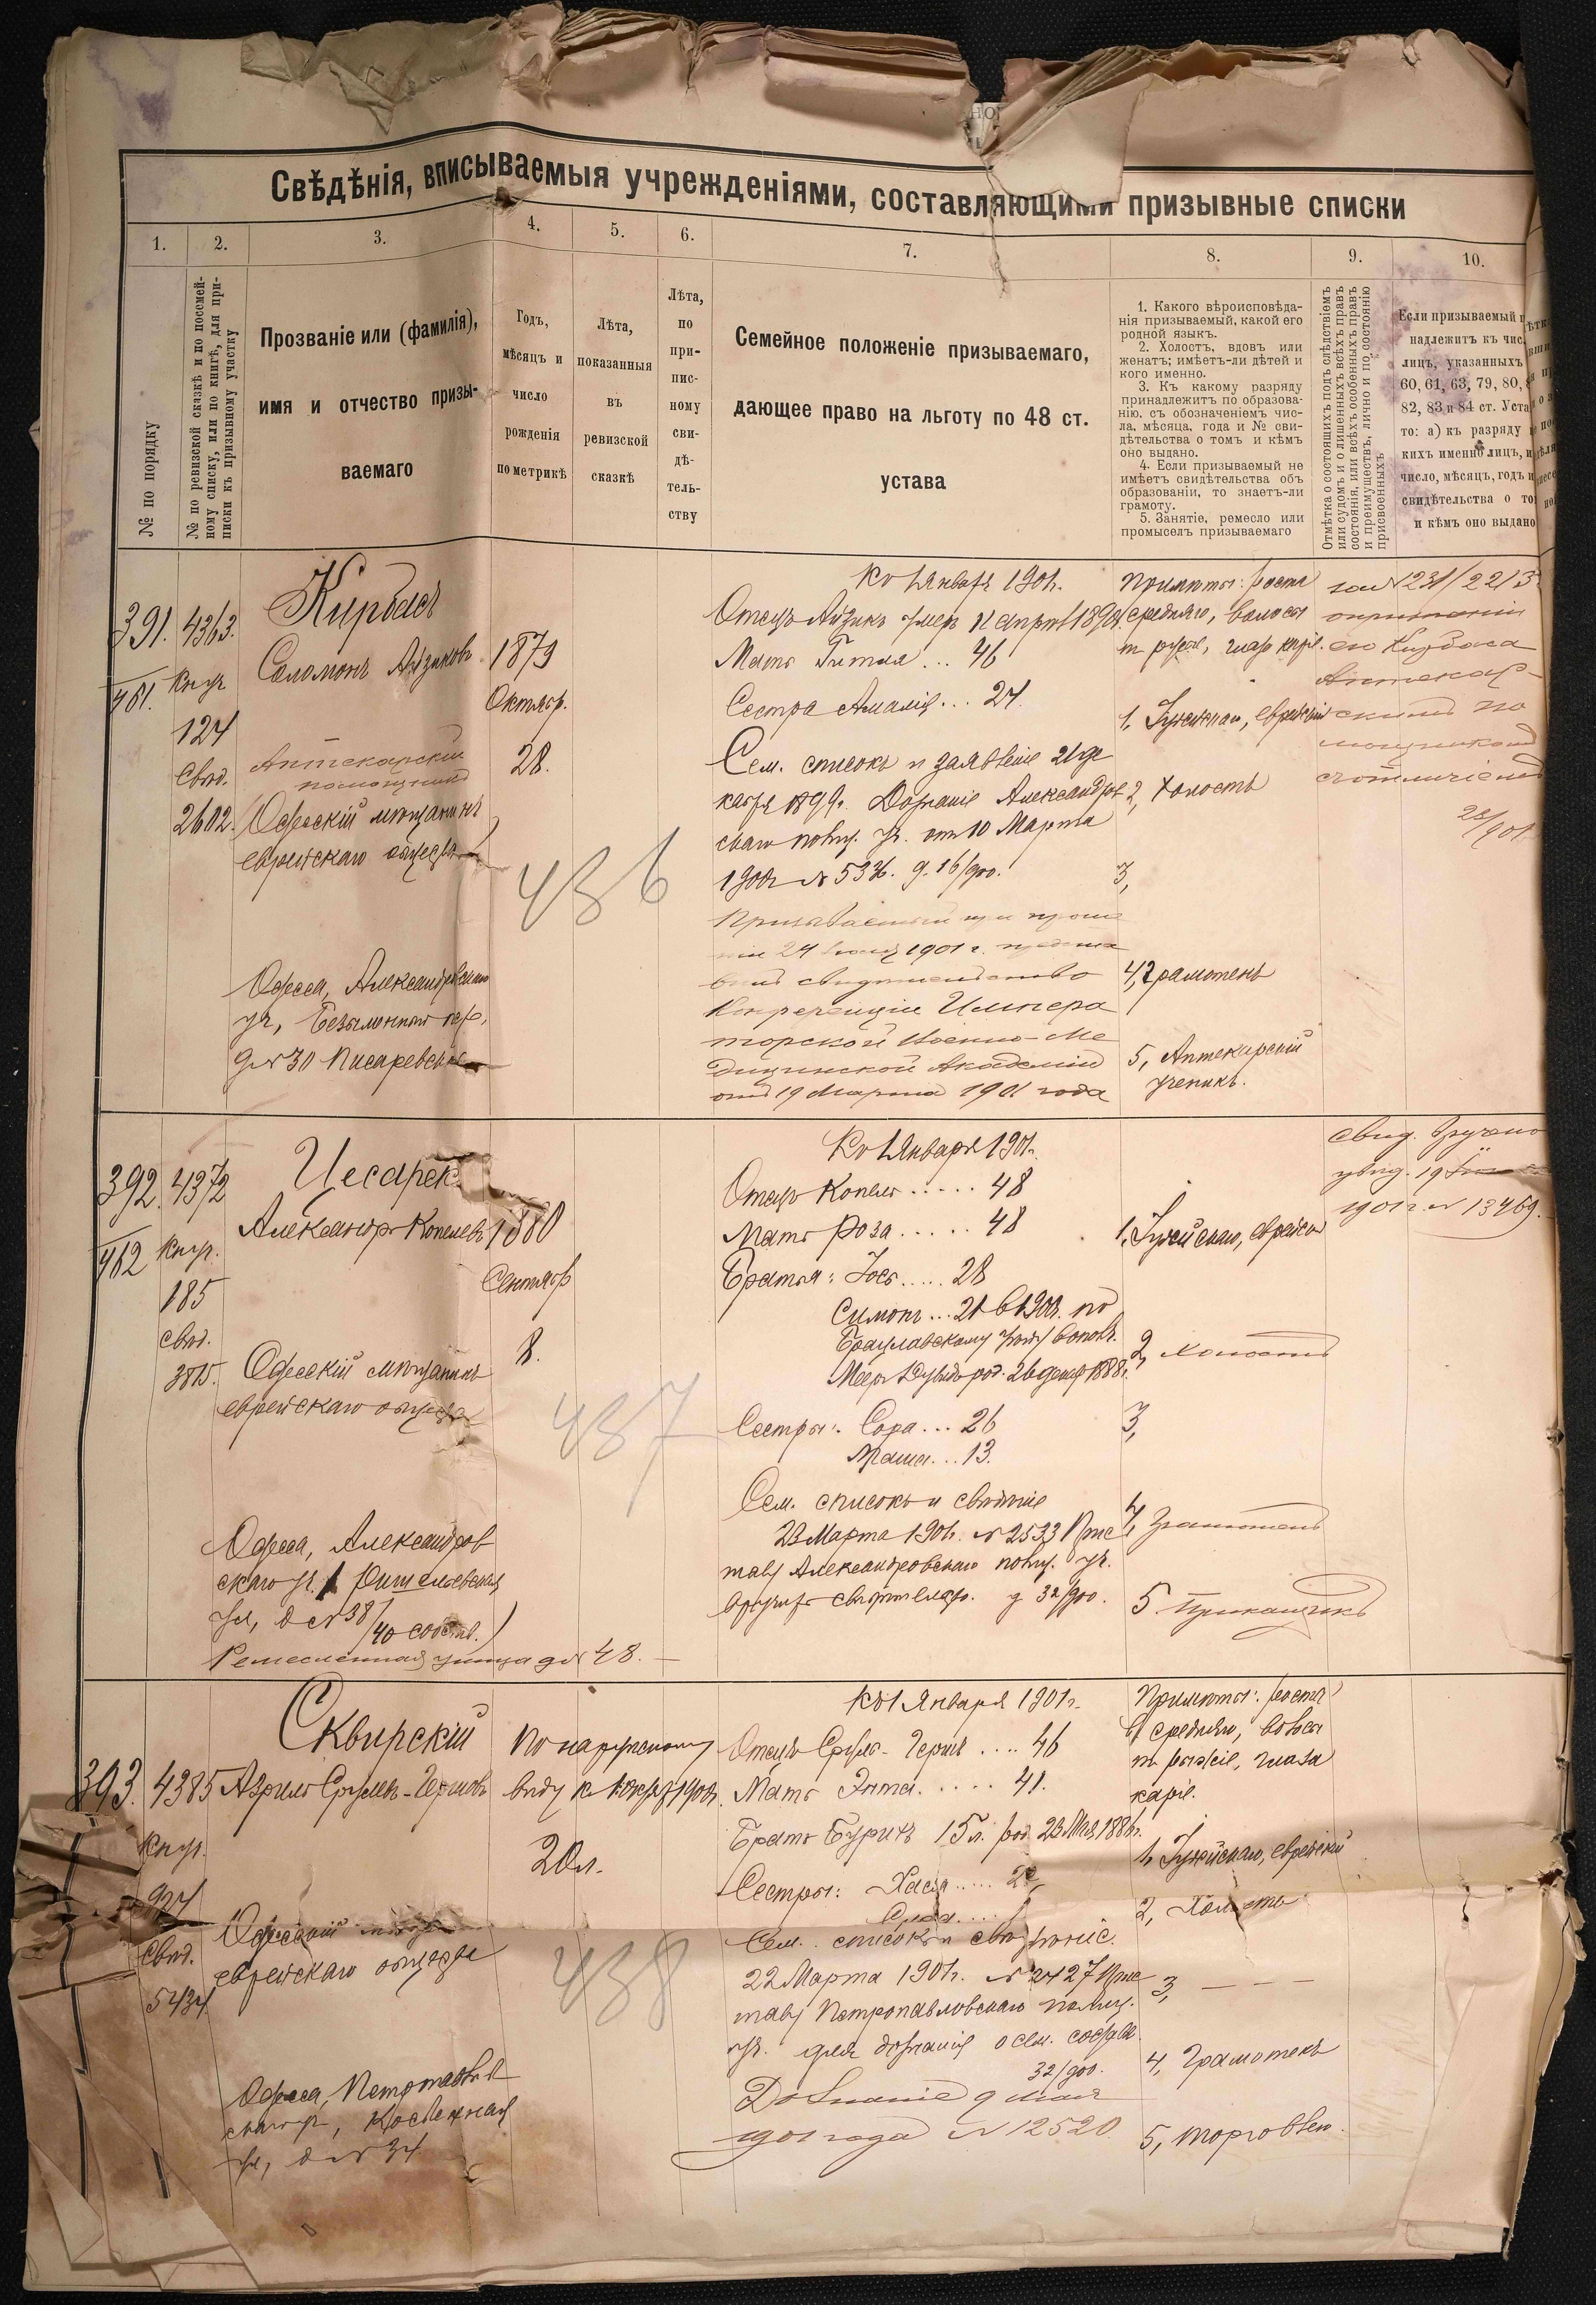 Свѣдѣнія, вписываемыя учрежденіями, составляющими призывные списки
1.
2.
3.
4.
5.
6.
7.
8.
9.
10.
№ по порядку
№ по ревизской сказкѣ и по посемей-
ному списку, или по книгѣ, для при-
писки къ призывному участку
Прозваніе или (фамилія),
имя и отчество призы-
ваемаго
Годъ,
мѣсяцъ и
число
рожденія
по метрикѣ
Лѣта,
показанныя
въ
ревизской
сказкѣ
Лѣта,
по
при-
пис-
ному
сви-
дѣ-
тель-
ству
Семейное положеніе призываемаго,
дающее право на льготу по 48 ст.
устава
1. Какого вѣроисповѣда-
нія призываемый, какой его
родной языкъ.
2. Холостъ, вдовъ или
женатъ; имѣетъ-ли дѣтей и
кого именно.
3. Къ какому разряду
принадлежитъ по образова-
нію, съ обозначеніемъ чис-
ла, мѣсяца, года и № сви-
дѣтельства о томъ и кѣмъ
оно выдано.
4. Если призываемый не
имѣетъ свидѣтельства объ
образованіи, то знаетъ-ли
грамоту.
5. Занятіе, ремесло или
промыселъ призываемаго
Отмѣтка о состоящихъ подъ слѣдствіемъ
или судомъ и о лишенныхъ всѣхъ правъ
состоянія, или всѣхъ особенныхъ правъ
и преимуществъ, лично и по состоянію
присвоенныхъ
Если призываемый п
надлежитъ къ чис
лицъ, указанныхъ
60, 61, 63, 79, 80,
82, 83 и 84 ст. Уста
то: а) къ разряду
кихъ именно лицъ, и
число, мѣсяцъ, годъ и
свидѣтельства о то
и кѣмъ оно выдано
391.
461.
4363.
Кнуж
124
Свод.
2602.
Кирбасъ
Соломонъ Айзиковъ
Аптекарскій
помощникъ
Одесскій мѣщанинъ
еврейскаго общества
Одесса, Александровскаго
уч., пер.
д № 30 Писаревской
1879
Октябр.
28.
436
Къ 1 Января 1901.
Отецъ Айзикъ умеръ
Мать Гитля... 46
Сестра Амалія... 24.
Сем. списокъ и заявленіе 21 де
кабря 1899. Дознаніе Александров
скаго полиц. уч. от 10 Марта
1901 № 5336. д. 16/900.
24 1901 г. предста
вилъ свидѣтельство
Конференціи Импера
торской Военно-Ме
дицинской Академіи
отъ 19 Марта 1901 года
Примѣты: роста
средняго, волосы
1, Іудейскаго, еврейскій
2, Холостъ
3,
4, Грамотенъ
5, Аптекарскій
ученикъ.
его Кирбаса
Аптекар-
скимъ по
мощникомъ
съ отличіемъ
392.
462
4372
Кнуж.
185
свод.
3815.
Цесарск.
Александръ Копелевъ
Одесскій мѣщанинъ
еврейскаго общества
Одесса, Александров
скаго уч. Ришельевская
ул., д № 38/40 собств.
Ремесленная улица д № 48.
1880
Сентябр
8.
437
Къ 1 Января 1901.
Отецъ Копель..... 48
Мать Роза..... 48
Братья: Іось..... 28
Симонъ... 21 в 1901. по
Брацлавскому
Меер Дувидъ род. 26 1888 г.
Сестры: Сора... 26
13.
Сем. списокъ и свѣдѣніе
23 Марта 1901. № 2533 Прис
таву Александровскаго полиц. уч.
д 32/900.
1, Іудейскаго, еврейскій
2, Холостъ
3,
4, Грамотенъ
5. Приказчикъ
свид. вручено
1901 г. № 13469.
393.
4385
Кнуж.
924
Свод.
5434
Сквирскій
Азриль Сруль-Гершовъ
Одесскій
еврейскаго общества
Одесса, Петропавлов
скаго уч., Костецкая
ул., д № 34
По наружному
виду к 1 окт. 1901.
20 л.
438
Къ 1 Января 1901 г.
Отецъ Сруль-Гершъ .... 46
Мать Энта..... 41.
Братъ Бурихъ 15 л. род. 23 Мая 1886 г.
Сестры: Хася.....
Сем. списокъ и свѣдѣніе.
22 Марта 1901. № 2427 Прис
таву Петропавловскаго полиц.
уч. для дознанія о сем. составѣ
32/900.
Дознаніе 9 Мая
1901 года № 12520.
Примѣты: роста
средняго, волосы
рыжіе, глаза
каріе.
1, Іудейскаго, еврейскій
2, Холостъ
3, — — —
4, Грамотенъ
5, Торговлею.